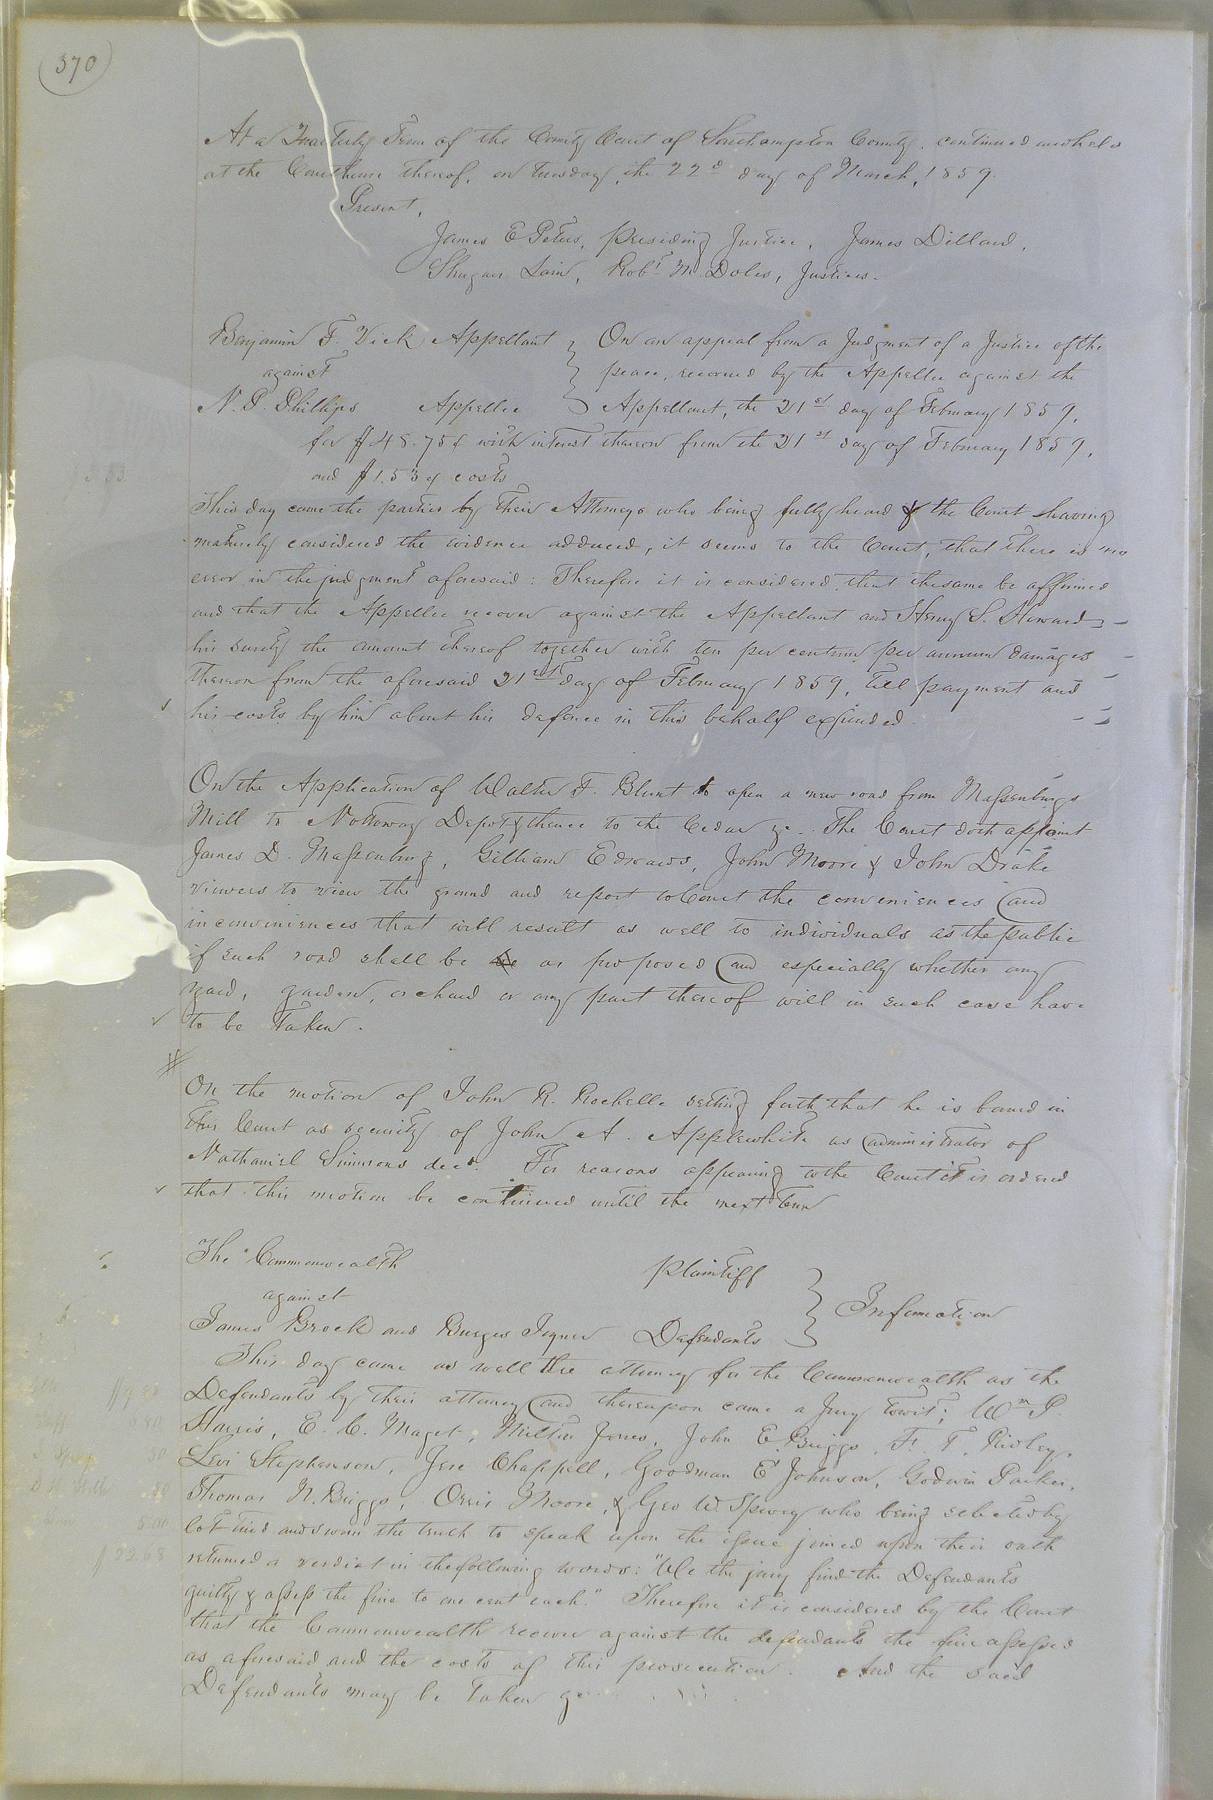 370
At a Quarterly Term of the County Court of Southampton County, continued and held
at the Courthouse thereof, on Tuesday, the 22d day of March, 1859.
Present,
James E Peters, Presiding Justice, James Dillard,
Shugars Lain, Robt. M. Doles, Justices.
Benjamin F. Vick Appellant
against
N. P. Phillips Appellee
On an appeal from a Judgment of a Justice of the
peace, recovered by the Appellee against the
Appellant, the 21st day of February 1859,
for $48.75¢ with interest thereon from the 21st day of February 1859,
and $1.53¢ costs
This day came the parties by their Attorneys who being fully heard & the Court having
maturely considered the evidence adduced, it seems to the Court, that there is no
error in the judgment aforesaid: Therefore it is considered that the same be affirmed
and that the Appellee recover against the Appellant and Henry S. Howard
his surety the amount thereof together with ten per centum per annum damages
thereon from the aforesaid 21st day of February 1859, till payment and
his costs by him about his defence in this behalf expended.
On the Application of Walter F. Blunt to open a new road from Massenburgs
Mill to Nottoway Depot & thence to the Cedar &c. The Court doth appoint
James D. Massenburg, Gilliam Edwards, John Moore & John Drake
viewers to view the ground and report to Court the conveniences and
inconveniences that will result as well to individuals as the public
if such road shall be as proposed and especially whether any
yard, garden, orchard or any part thereof will in such case have
to be taken.
On the motion of John R. Rochelle setting forth that he is bound in
this Court as security of John A. Applewhite as administrator of
Nathaniel Simmons decd. For reasons appearing to the Court it is ordered
that this motion be continued until the next term
The Commonwealth Plaintiff
against
James Brock and Burges Joyner Defendants
Information
This day came as well the attorney for the Commonwealth as the
Defendants by their attorney and thereupon came a Jury towit; Wm P.
Harris, E. C. Maget, Milton Jones, John E. Briggs, F. T. Ridley,
Levi Stephenson, Jere Chappell, Goodman E Johnson, Godwin Parker,
Thomas N. Briggs, Orris Moore, & Geo W. Spivey who being selected by
lot tried and sworn the truth to speak upon the issue joined upon their oath
returned a verdict in the following words: "We the jury find the Defendants
guilty & assess the fine to one cent each." Therefore it is considered by the Court
that the Commonwealth recover against the defendants the fine assessed
as aforesaid and the costs of this prosecution. And the said
Defendants may be taken &c